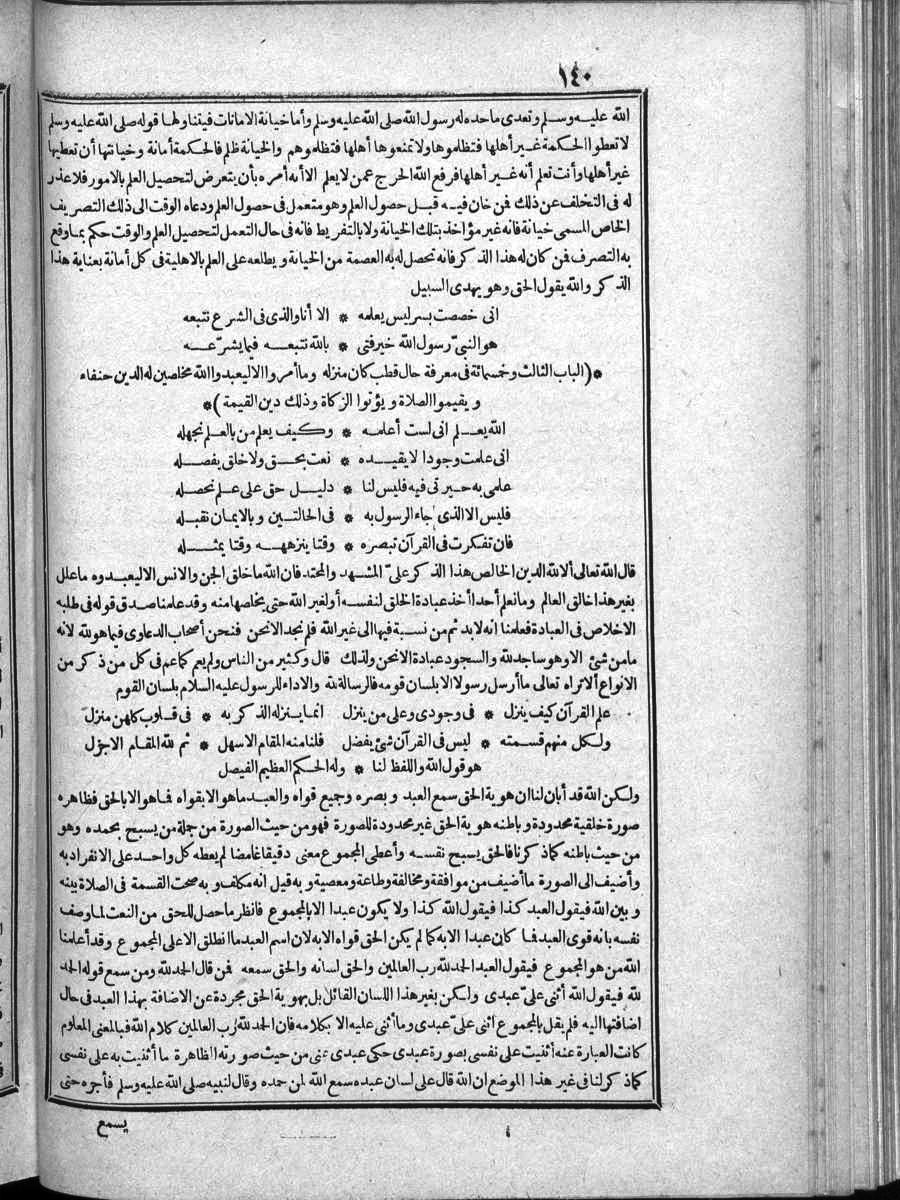 ١٤٠
الله عليه وسلم وتعدى ما حده له رسول الله صلى الله عليه وسلم وأما خيانة الامانات فيتناولها قوله صلى الله عليه وسلم
لا تعطوا الحكمة غير أهلها فتظلموها ولا تمنعوها أهلها فتظلموهم والخيانة ظلم فالحكمة أمانة وخيانتها أن تعطيها
غير أهلها وأنت تعلم أنه غير أهلها فرفع الله الحرج عمن لا يعلم الا أنه أمره بأن يتعرض لتحصيل العلم بالامور فلا عذر
له فى التخلف عن ذلك فمن خان فيه قبل حصول العلم وهو متعمل فى حصول العلم ودعاه الوقت الى ذلك التصريف
الخاص المسمى خيانة فانه غير مؤاخذ بتلك الخيانة ولا بالتفريط فانه فى حال التعمل لتحصيل العلم والوقت حكم بما وقع
به التصرف فمن كان له هذا الذكر فانه تحصل له به العصمة من الخيانة ويطلعه على العلم بالاهلية فى كل أمانة بعناية هذا
الذكر والله يقول الحق وهو يهدى السبيل
انى خصصت بسر ليس يعلمه * الا أنا والذى فى الشرع نتبعه
هو النبىّ رسول الله خير فتى * بالله نتبعه فيما يشرّعه
*(الباب الثالث وخمسمائة فى معرفة حال قطب كان منزله وما أمروا الا ليعبدوا الله مخلصين له الدين حنفاء
ويقيموا الصلاة ويؤتوا الزكاة وذلك دين القيمة)*
الله يعلم انى لست أعلمه * وكيف يعلم من بالعلم نجهله
انى علمت وجودا لا يقيده * نعت بحق ولا خلق يفصله
علمى به حيرتى فيه فليس لنا * دليل حق على علم نحصله
فليس الا الذى جاء الرسول به * فى الحالتين وبالايمان نقبله
فان تفكرت فى القرآن تبصره * وقتا ينزهه وقتا يمثله
قال الله تعالى ألا لله الدين الخالص هذا الذكر علىّ المشهد والمحتد فان الله ما خلق الجن والانس الا ليعبدوه ما علل
بغير هذا خالق العالم وما نعلم أحدا أخذ عبادة الخلق لنفسه أو لغير الله حتى يخلصها منه وقد علمنا صدق قوله فى طلبه
الاخلاص فى العبادة فعلمنا انه لا بد ثم من نسبة فيها الى غير الله فلم نجد الا نحن فنحن أصحاب الدعاوى فيما هو لله لانه
ما من شئ الا وهو ساجد لله والسجود عبادة الا نحن ولذلك قال وكثير من الناس ولم يعم كما عم فى كل من ذكر من
الانواع ألا تراه تعالى ما أرسل رسولا الا بلسان قومه فالرسالة لله والاداء للرسول عليه السلام بلسان القوم
علم القرآن كيف ينزل * فى وجودى وعلى من ينزل انما ينزله الذكر به * فى قلوب كلهن منزل
ولكل منهم قسمته * ليس فى القرآن شئ يفضل فلنا منه المقام الاسهل * ثم لله المقام الاجزل
هو قول الله واللفظ لنا * وله الحكم العظيم الفيصل
ولكن الله قد أبان لنا ان هوية الحق سمع العبد وبصره وجميع قواه والعبد ما هو الا بقواه فما هو الا بالحق فظاهره
صورة خلقية محدودة وباطنه هوية الحق غير محدودة للصورة فهو من حيث الصورة من جملة من يسبح بحمده وهو
من حيث باطنه كما ذكرنا فالحق يسبح نفسه وأعطى المجموع معنى دقيقا غامضا لم يعطه كل واحد على الانفراد به
وأضيف الى الصورة ما أضيف من موافقة ومخالفة وطاعة ومعصية وبه قيل انه مكلف وبه صحت القسمة فى الصلاة بينه
وبين الله فيقول العبد كذا فيقول الله كذا ولا يكون عبدا الا بالمجموع فانظر ما حصل للحق من النعت لما وصف
نفسه بانه قوى العبد فما كان عبدا الا به كما لم يكن الحق قواه الا به لان اسم العبد ما انطلق الا على المجموع وقد أعلمنا
الله من هو المجموع فيقول العبد الحمد لله رب العالمين والحق لسانه والحق سمعه فمن قال الحمد لله ومن سمع قوله الحمد
لله فيقول الله أثنى علىّ عبدى ولكن بغير هذا اللسان القائل بل بهوية الحق مجردة عن الاضافة بهذا العبد فى حال
اضافتها اليه فلم يقل بالمجموع اثنى علىّ عبدى وما أثنى عليه الا بكلامه فان الحمد لله رب العالمين كلام الله فبالمعنى المعلوم
كانت العبارة عنه أثنيت على نفسى بصورة عبدى حكى عبدى عنى من حيث صورته الظاهرة ما أثنيت به على نفسى
كما ذكر لنا فى غير هذا الموضع ان الله قال على لسان عبده سمع الله لمن حمده وقال لنبيه صلى الله عليه وسلم فأجره حتى
يسمع